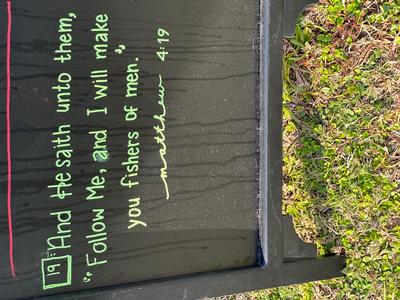 19 And He saith unto them,
"Follow Me, and I will make
you fishers of men."
matthew 4:19